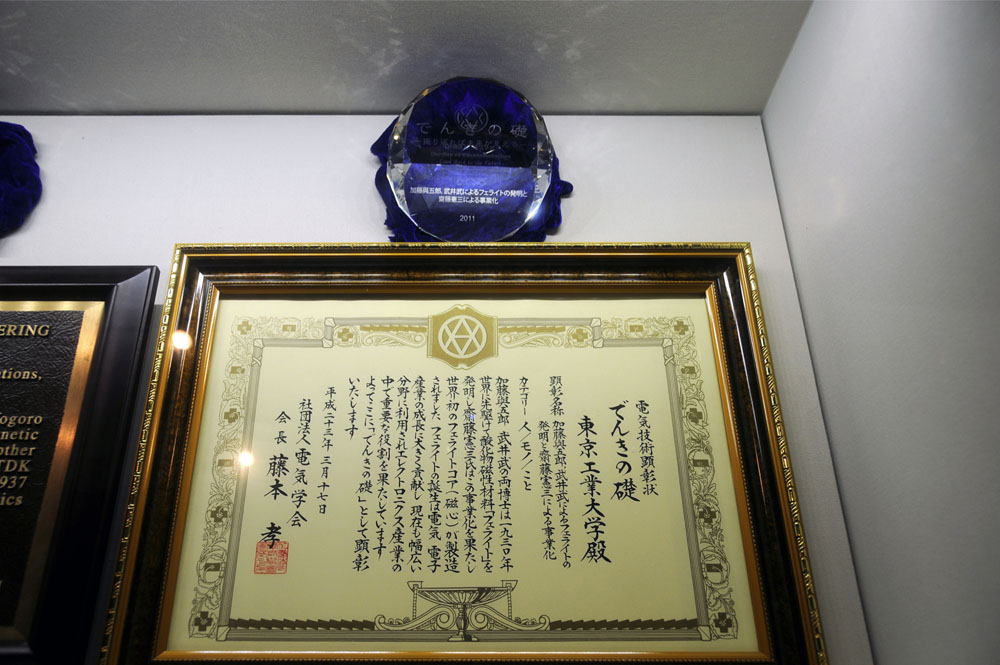 でんきの礎
加藤與五郎、武井武によるフェライトの発明と
齋藤憲三による事業化
2011
ERING
ations,
ogoro
netic
other
TDK
937
ics
電気技術顕彰状
でんきの礎
東京工業大学殿
顕彰名称 加藤與五郎、武井武によるフェライトの
発明と齋藤憲三による事業化
カテゴリー 人／モノ／こと
加藤與五郎 武井武の両博士は一九三〇年
世界に先駆けて酸化物磁性材料「フェライト」を
発明し 齋藤憲三氏はこの事業化を果たし
世界初のフェライトコア（磁心）が製造
されました フェライトの誕生は電気 電子
産業の成長に大きく貢献し 現在も幅広い
分野に利用されエレクトロニクス産業の
中で重要な役割を果たしています
よってここに「でんきの礎」として顕彰
いたします
平成二十三年 三月十七日
社団法人 電気学会
会長 藤本 孝